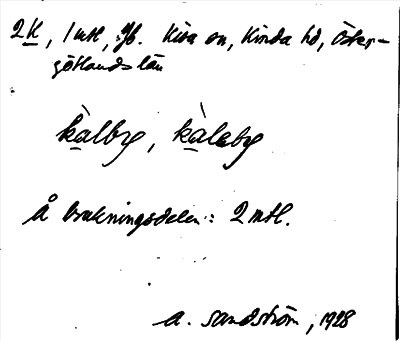 2 K, 1 mtl, Yb. Kisa sn, Kinda hd, Öster-
götlands län
kàlby, kàlaby
Å brukningsdelen: 2 mtl.
A. Sandström, 1928